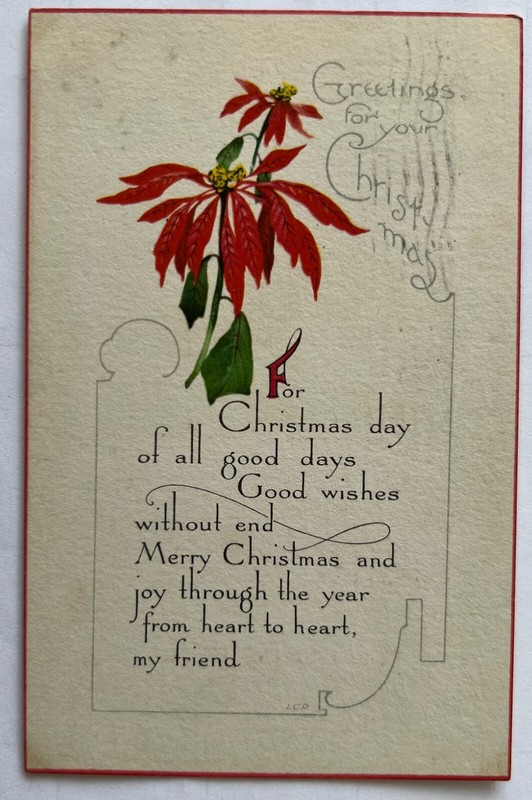 Greetings
for your
Christ-
mas
For
Christmas day
of all good days
Good wishes
without end
Merry Christmas and
joy through the year
from heart to heart,
my friend